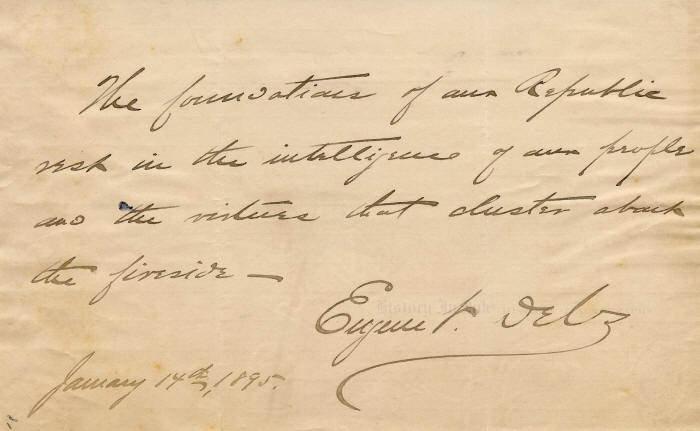 The foundations of our Republic
rest in the intelligence of our people
and the virtues that cluster about
the fireside —
Eugene V. Debs
January 14th, 1895.